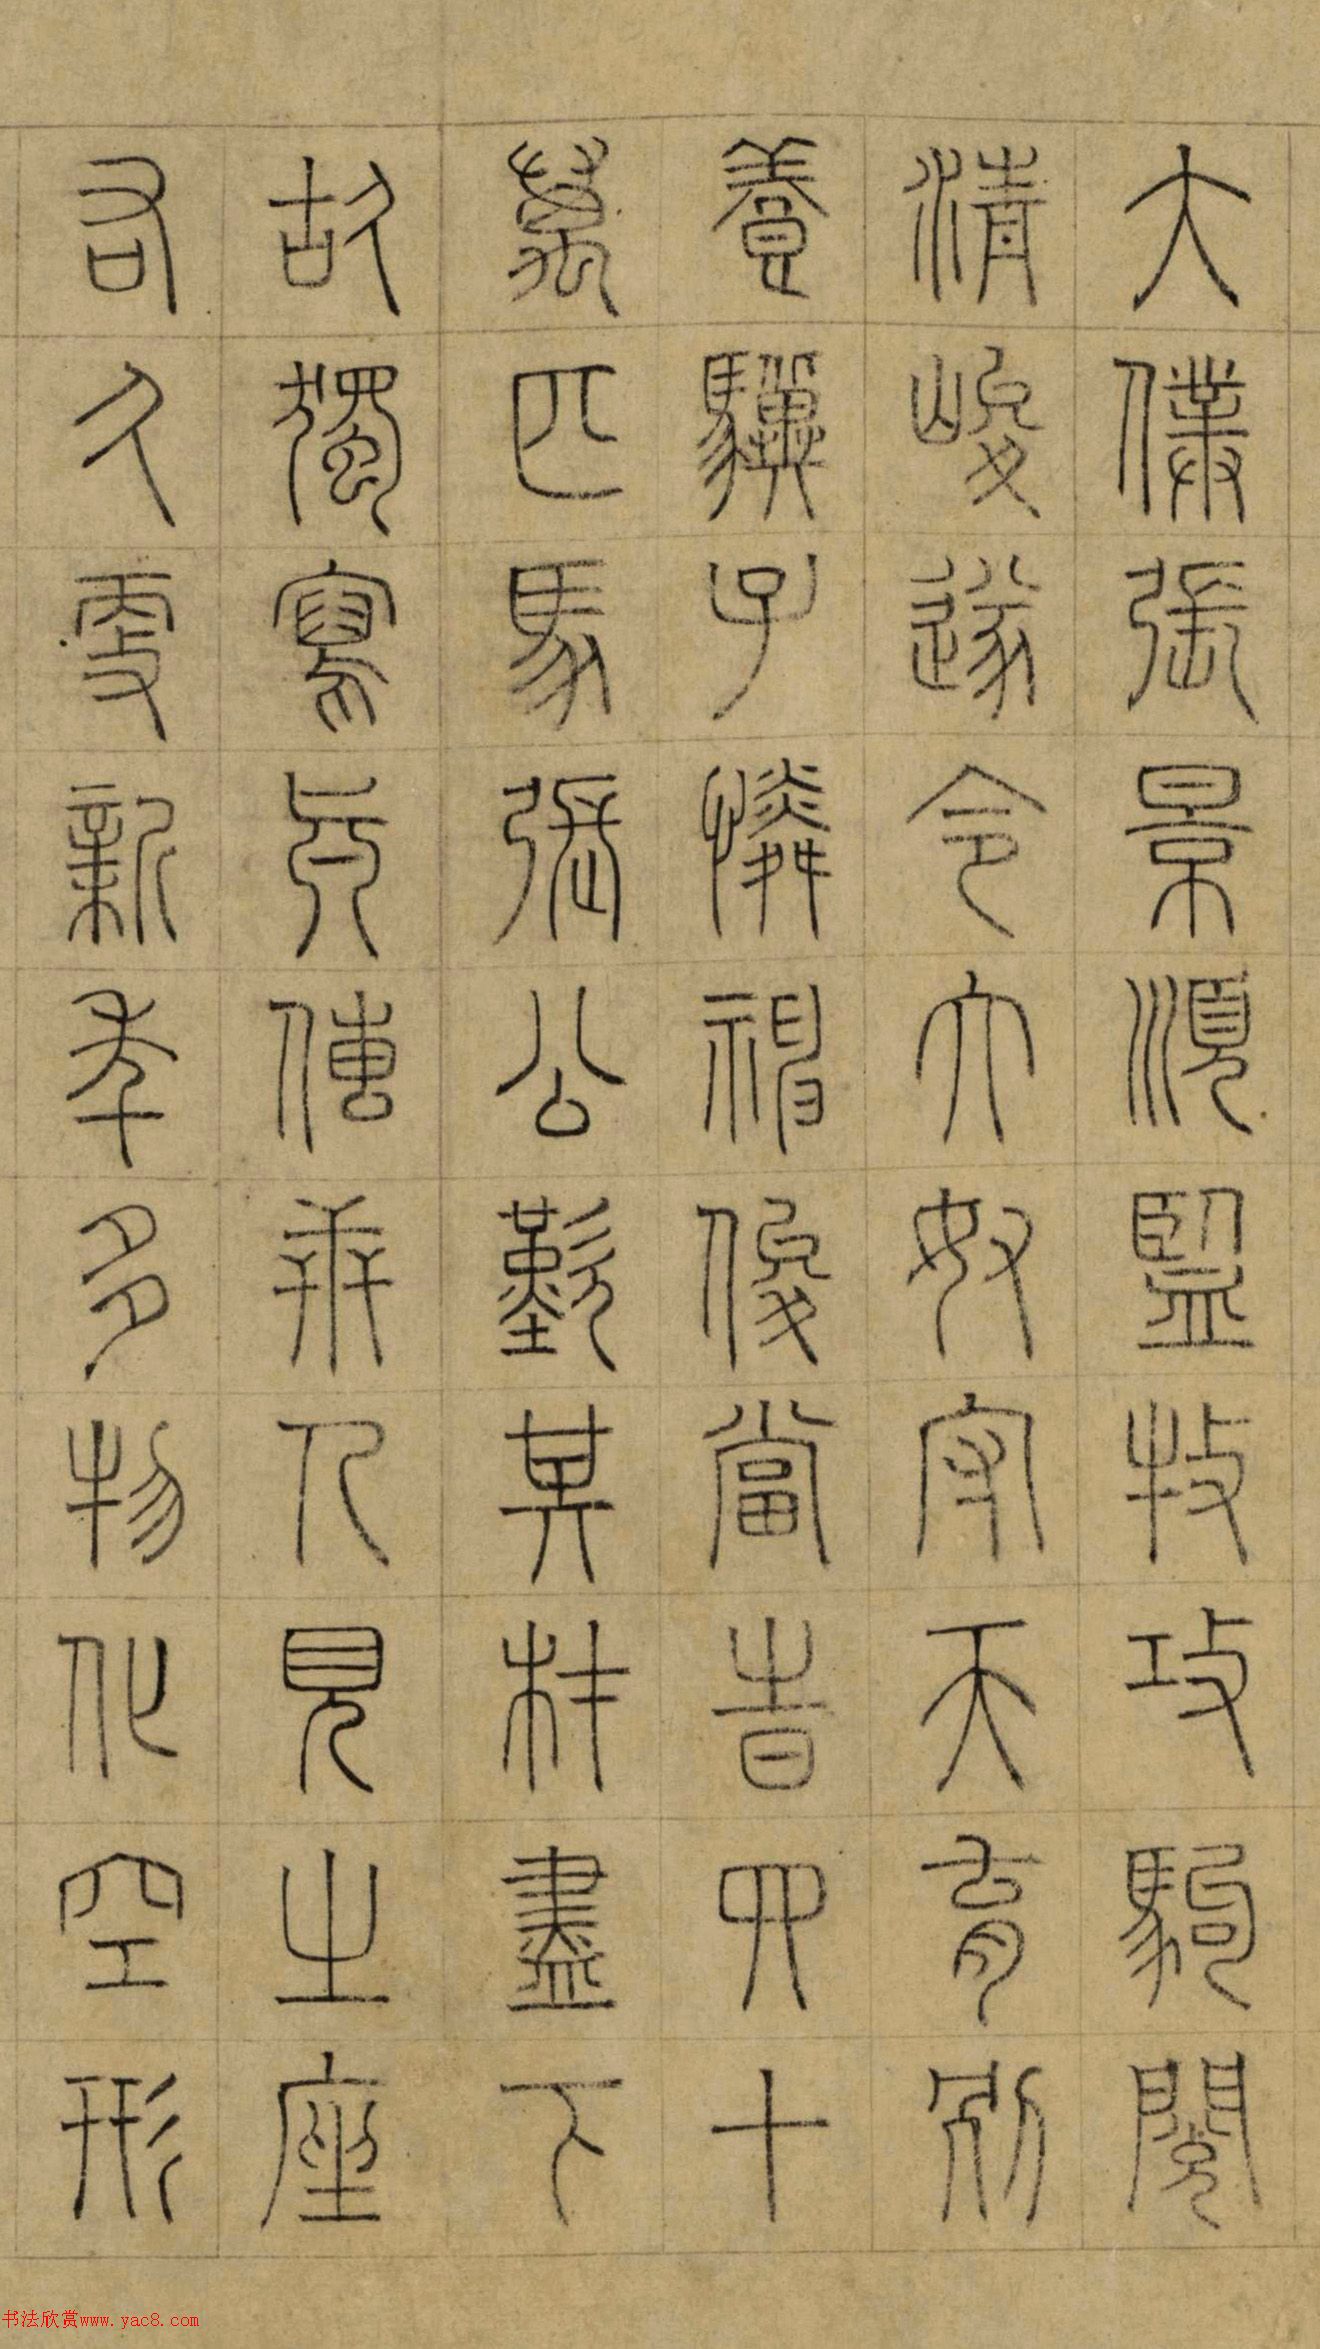 大僕張景順監牧攻駒閱
清峻遂令大奴守天育別
養驥子憐神俊當昔四十
萬匹馬張公歎其材盡下
故獨寫真傳世人見之座
右久更新年多物化空形
书法欣赏www.yac8.com